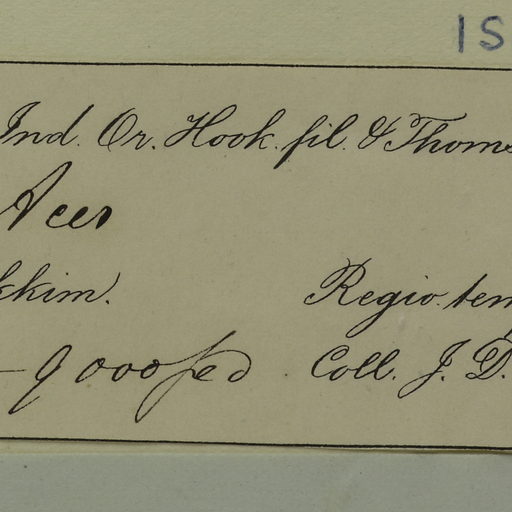 IS
Ind. Or. Hook. fil. & Thoms
Acer
kkim.
Regio. tem
– 9000 ped
Coll. J. D.